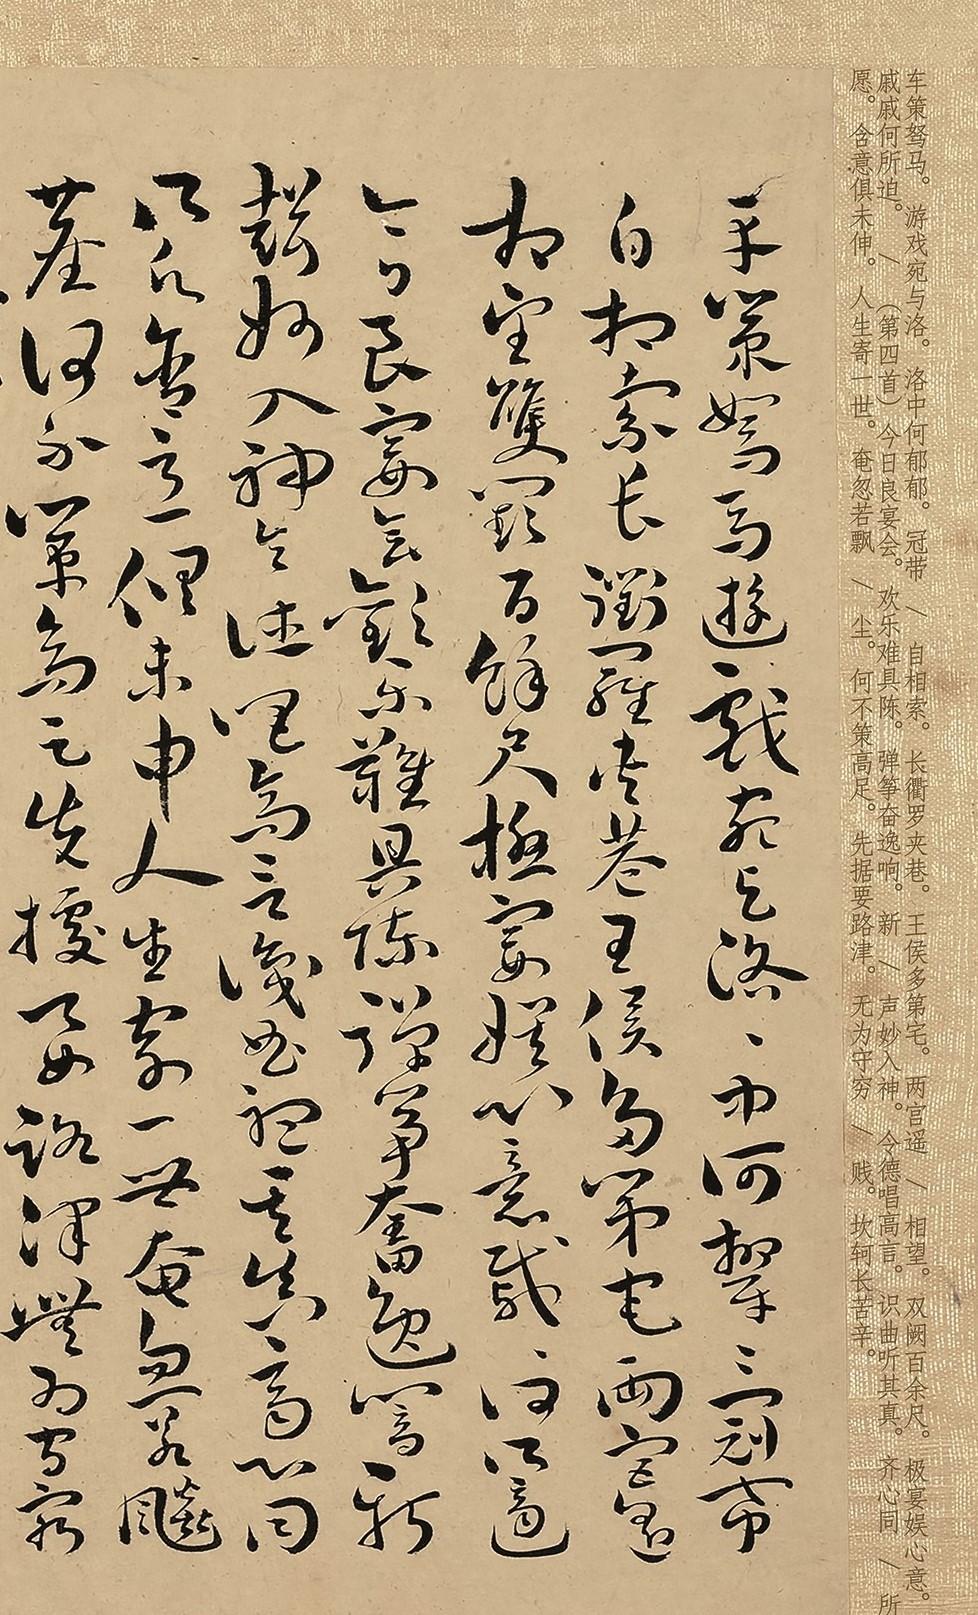 车策驽马。游戏宛与洛。洛中何郁郁。冠带 / 自相索。长衢罗夹巷。王侯多第宅。两宫遥 / 相望。双阙百余尺。极宴娱心意。
戚戚何所迫。 / (第四首)今日良宴会。欢乐难具陈。弹筝奋逸响。新 / 声妙入神。令德唱高言。识曲听其真。齐心同 / 所
愿。含意俱未伸。人生寄一世。奄忽若飘 / 尘。何不策高足。先据要路津。无为守穷 / 贱。坎轲长苦辛。
車策駑馬遊戲宛與洛〻中何欝〻冠帶
自相索長衢羅夾巷王侯多第宅兩宮遥
相望雙闕百餘尺極宴娱心意戚〻何所迫
今日良宴會歡樂難具陳彈筝奮逸響新
聲妙入神令德唱高言識曲聽其真齊心同
所願含意俱未申人生寄一世奄忽若飈
塵何不策高足先據要路津無為守窮